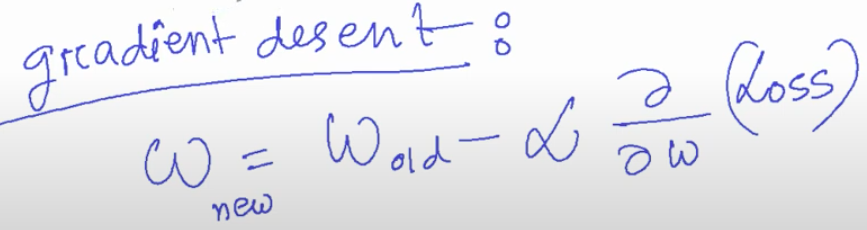 gradient desent :
ω_new = W_old - α ∂/∂w (Loss)